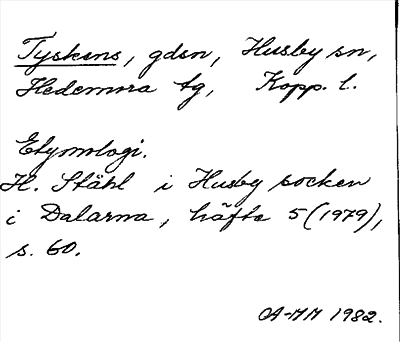 Tyskens, gdsn, Husby sn,
Hedemora tg, Kopp. l.
Etymologi.
H. Ståhl i Husby socken
i Dalarna, häfte 5 (1979),
s. 60.
A-MM 1982.